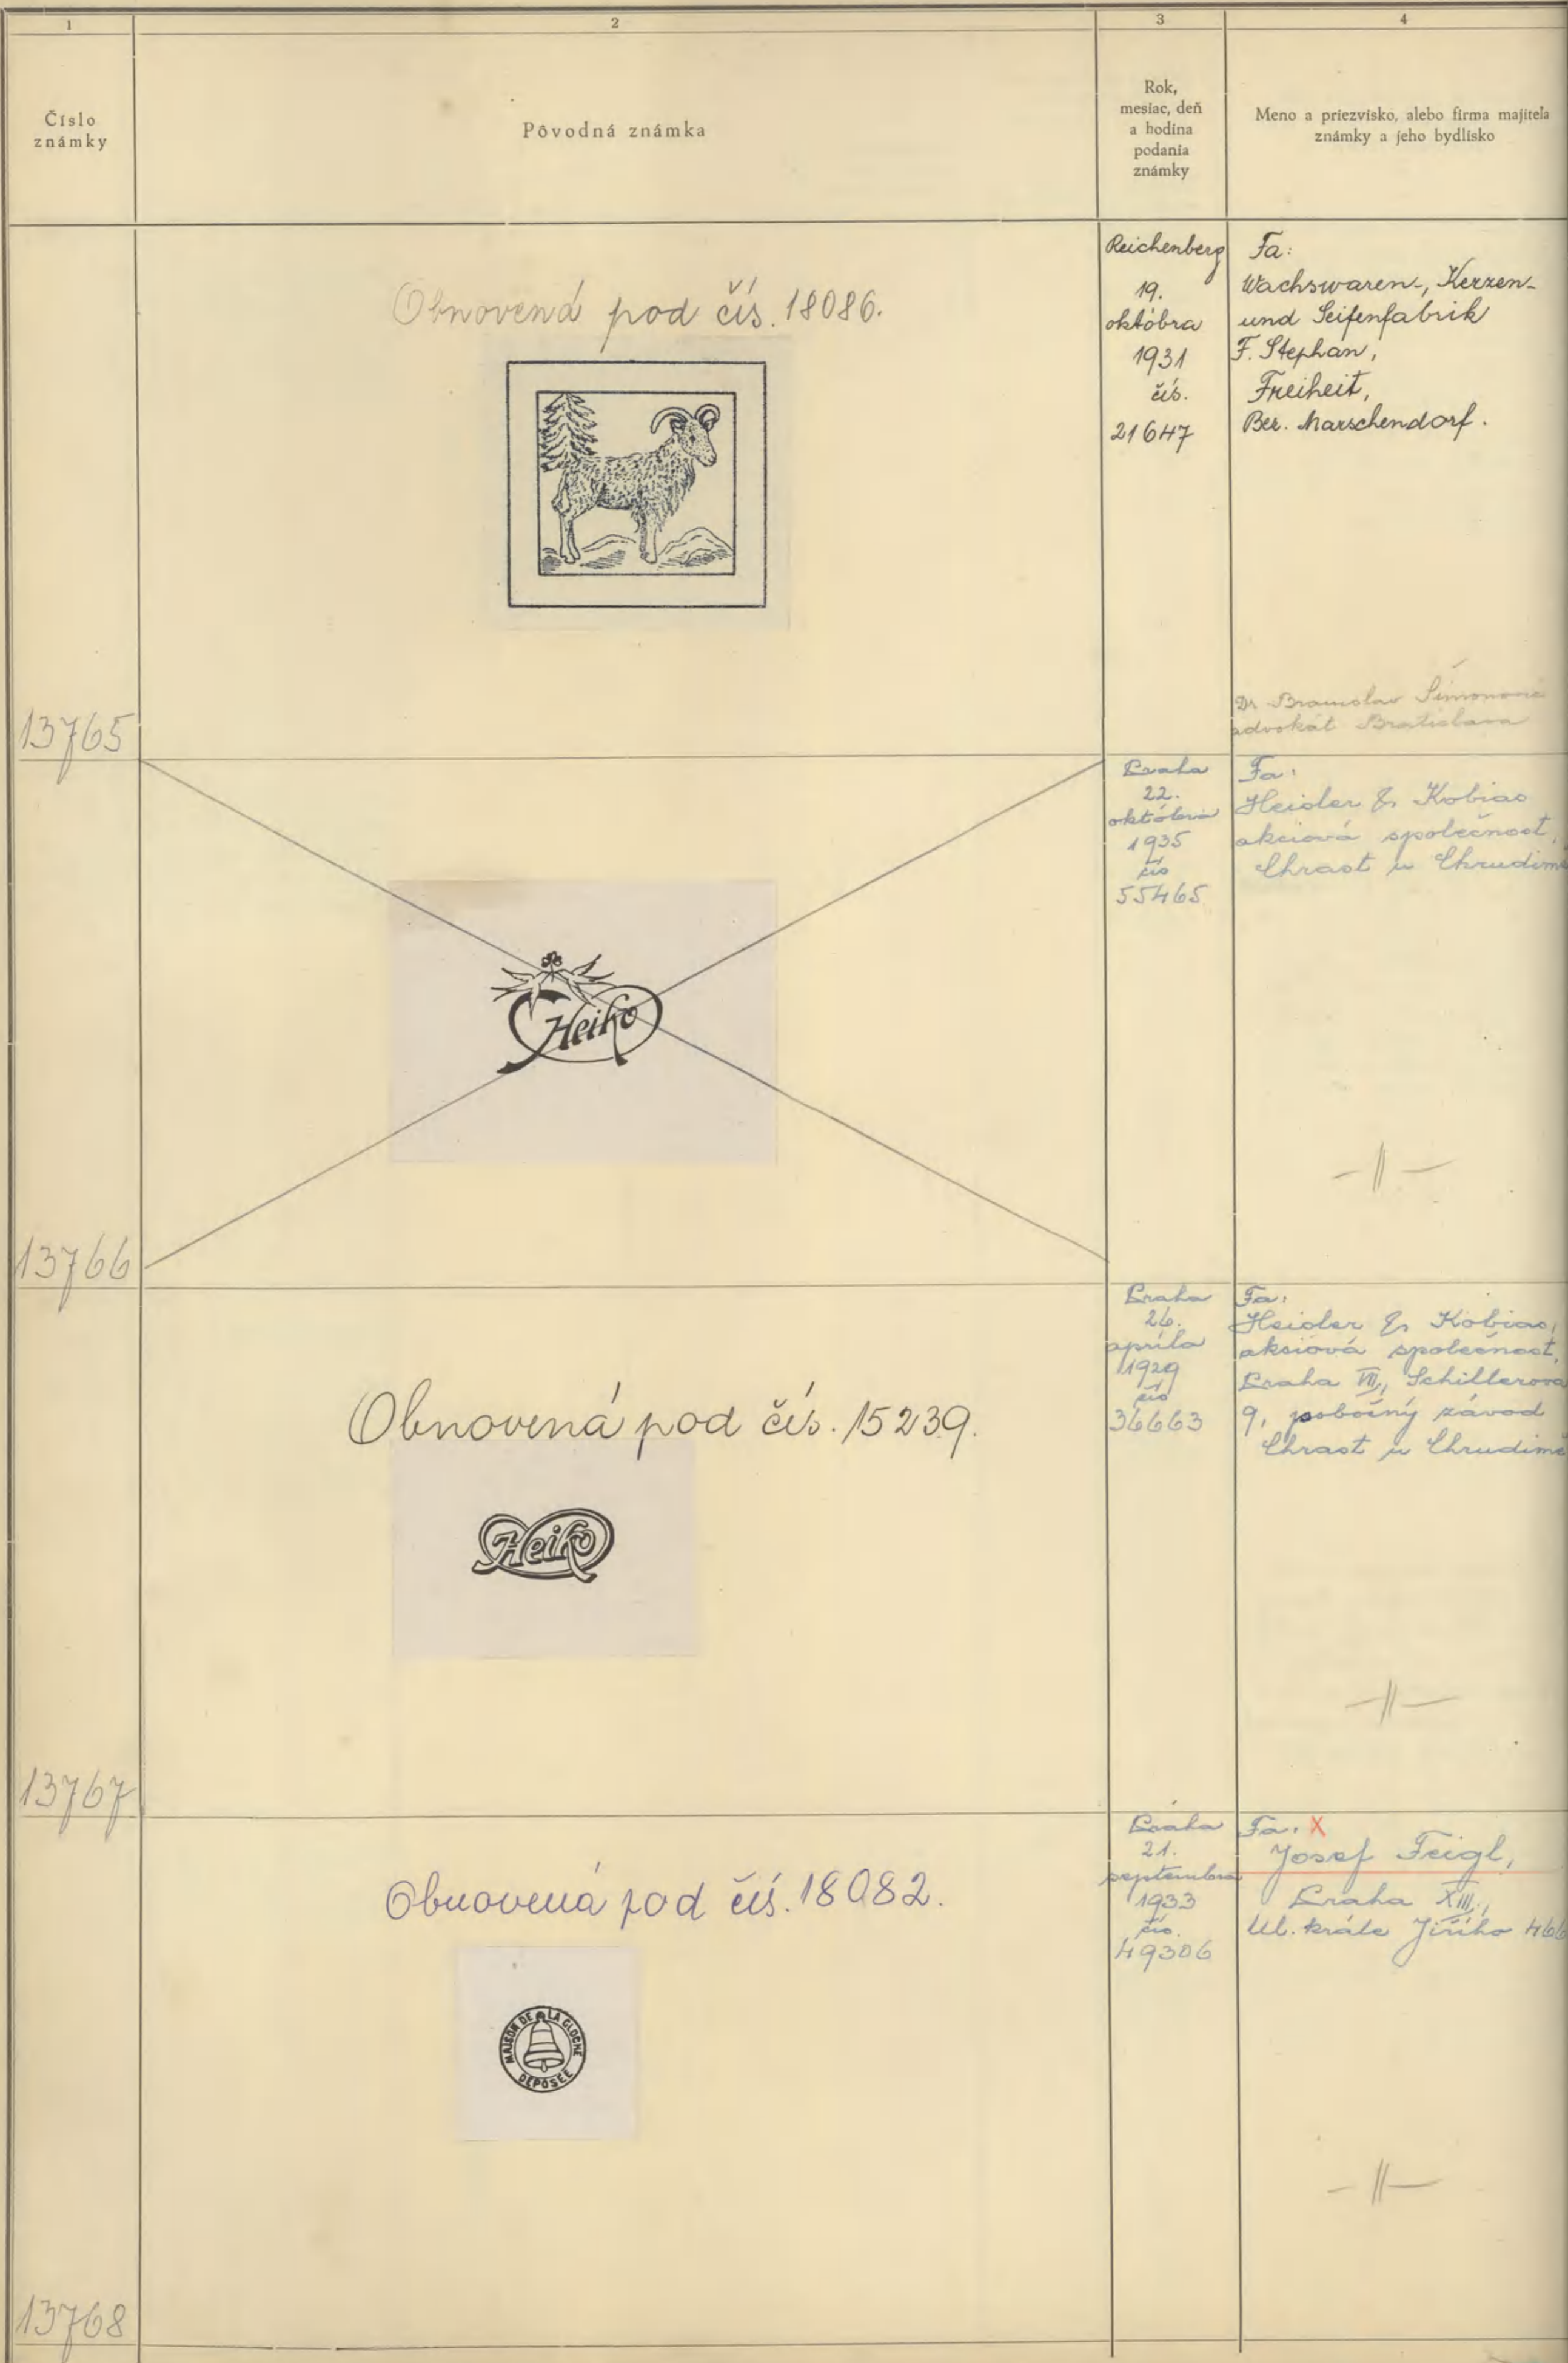 1
2
3
4
Číslo
známky
Pôvodná známka
Rok,
mesiac, deň
a hodina
podania
známky
Meno a priezvisko, alebo firma majiteľa
známky a jeho bydlisko
13765
Obnovená pod čís. 18086.
Reichenberg
19.
októbra
1931
čís.
21647
Fa:
Wachswaren-, Kerzen-
und Seifenfabrik
F. Stephan,
Freiheit,
Bez. Marschendorf.
Dr Branislav
advokát Bratislava
13766
Heiko
Praha
22.
októbra
1935
čís
55465
Fa:
Heidler & Kobias
akciová společnost,
Chrast u Chrudimě
-||-
13767
Obnovená pod čís. 15239.
Heiko
Praha
26.
apríla
1929
čís
36663
Fa:
Heidler & Kobias,
akciová společnost,
Praha VII, Schillerova
9, pobočný závod
Chrast u Chrudimě
-||-
13768
Obnovená pod čís. 18082.
MAISON DE LA CLOCHE
DEPOSÉE
Praha
21.
septembra
1933
čís.
49306
Fa: X
Josef Feigl,
Praha XIII.,
Ul. krále Jiřího 466
-||-